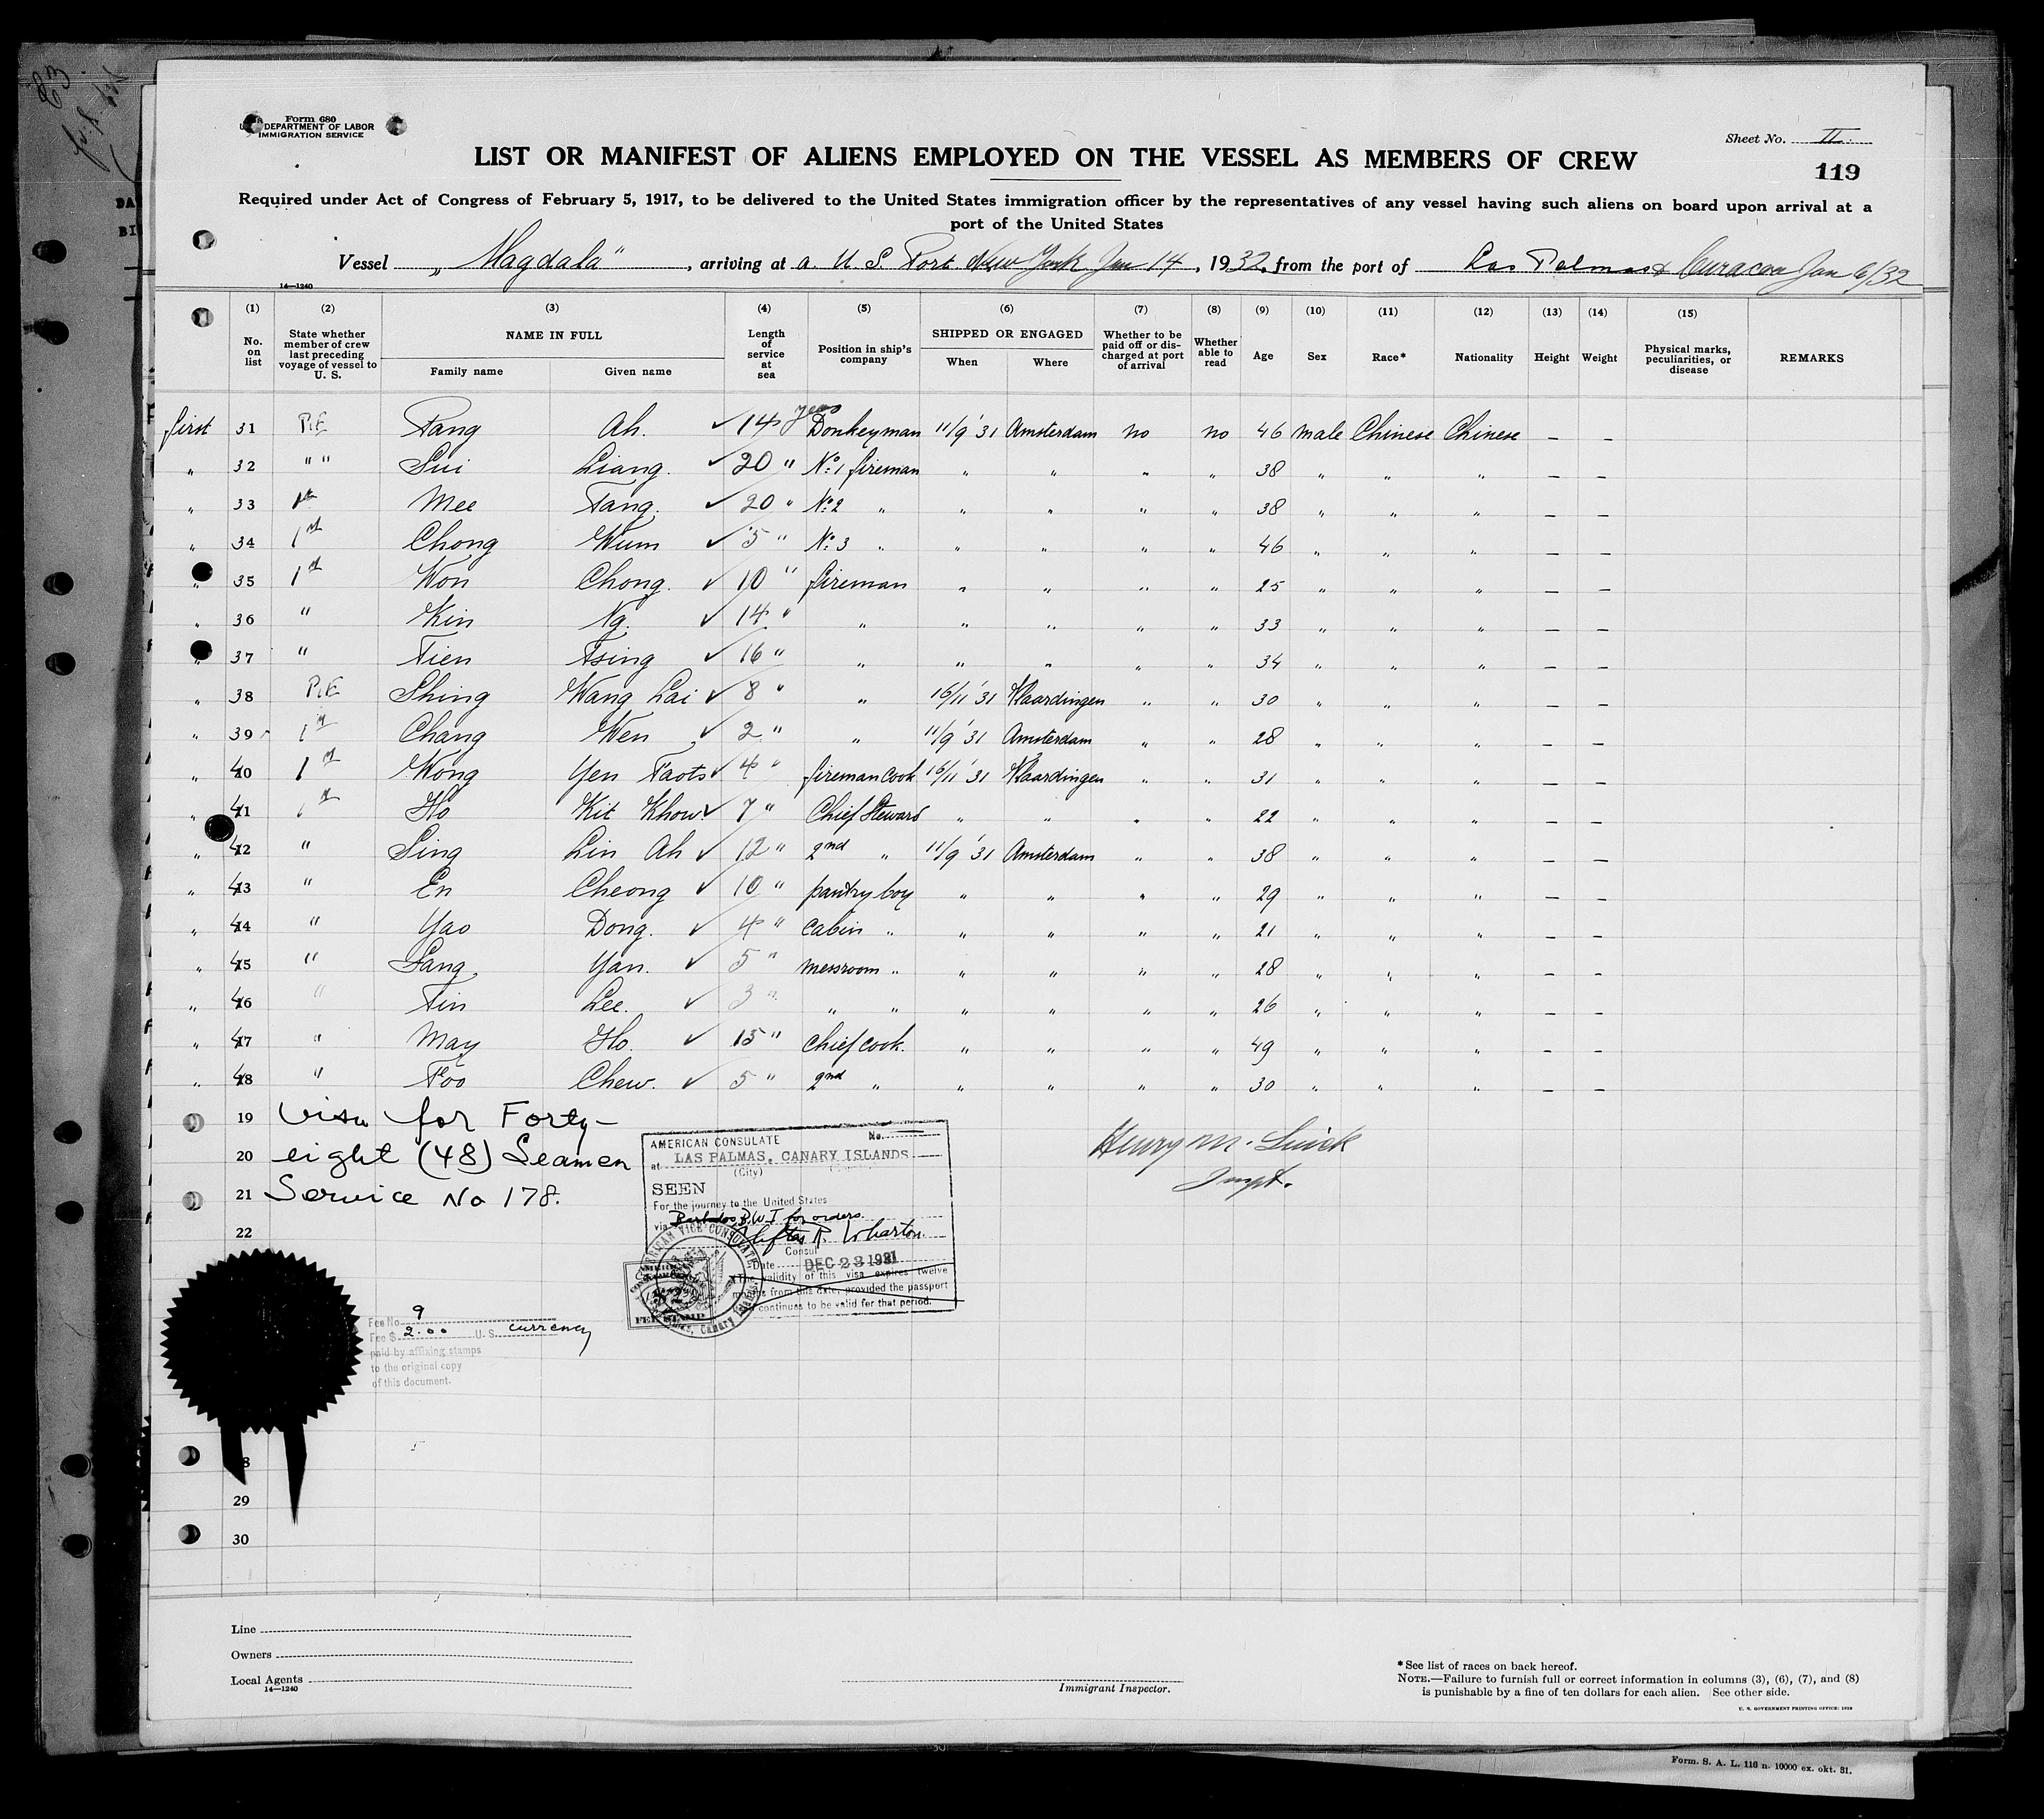 Form 680
DEPARTMENT OF LABOR
IMMIGRATION SERVICE
Sheet No. II
LIST OR MANIFEST OF ALIENS EMPLOYED ON THE VESSEL AS MEMBERS OF CREW
119
Required under Act of Congress of February 5, 1917, to be delivered to the United States immigration officer by the representatives of any vessel having such aliens on board upon arrival at a
port of the United States
Vessel „Magdala", arriving at a U S Port New York Jan 14, 1932, from the port of Las Palmas & Curacao Jan 6/32
14—1240
(1) No. on list (2) State whether member of crew last preceding voyage of vessel to U. S. (3) NAME IN FULL Family name Given name (4) Length of service at sea (5) Position in ship's company (6) SHIPPED OR ENGAGED When Where (7) Whether to be paid off or discharged at port of arrival (8) Whether able to read (9) Age (10) Sex (11) Race* (12) Nationality (13) Height (14) Weight (15) Physical marks, peculiarities, or disease REMARKS
first 31 P.E. Pang Ah. ✓ 14 years Donkeyman 11/9 '31 Amsterdam no no 46 male Chinese Chinese — —
„ 32 " " Sui Liang. ✓ 20 " No 1 fireman „ „ „ „ 38 „ „ „ — —
„ 33 1st Mee Fang. ✓ 20 " No 2 „ „ „ „ „ 38 „ „ „ — —
„ 34 1st Chong Wum ✓ 5 " No 3 „ „ „ „ „ 46 „ „ „ — —
„ 35 1st Won Chong. ✓ 10 " fireman „ „ „ „ 25 „ „ „ — —
„ 36 " Kin Ng. ✓ 14 " „ „ „ „ „ 33 „ „ „ — —
„ 37 " Tien Tsing ✓ 16 " „ „ „ „ „ 34 „ „ „ — —
„ 38 P.E. Shing Wang Lai ✓ 8 " „ 16/11 '31 Vlaardingen „ „ 30 „ „ „ — —
„ 39 1st Chang Wen ✓ 2 " „ 11/9 '31 Amsterdam „ „ 28 „ „ „ — —
„ 40 1st Wong Yen Taots ✓ 4 " fireman cook 16/11 '31 Vlaardingen „ „ 31 „ „ „ — —
„ 41 1st Ho Kit Khow. ✓ 7 " Chief Steward „ „ „ „ 22 „ „ „ — —
„ 42 " Sing Lin Ah ✓ 12 " 2nd „ 11/9 '31 Amsterdam „ „ 38 „ „ „ — —
„ 43 " En Cheong ✓ 10 " pantry boy „ „ „ „ 29 „ „ „ — —
„ 44 " Yao Dong. ✓ 4 " cabin „ „ „ „ „ 21 „ „ „ — —
„ 45 " Sang. Yan. ✓ 5 " messroom „ „ „ „ „ 28 „ „ „ — —
„ 46 " Tin Lee. ✓ 3 " „ „ „ „ „ „ 26 „ „ „ — —
„ 47 " May Ho. ✓ 15 " Chief cook. „ „ „ „ 49 „ „ „ — —
„ 48 " Foo Chew. ✓ 5 " 2nd „ „ „ „ „ 30 „ „ „ — —
19 Visa for Forty-
20 eight (48) Seamen
21 Service No 178.
22
AMERICAN CONSULATE No.
at LAS PALMAS, CANARY ISLANDS
(City)
SEEN
For the journey to the United States
via Barbados B.W.I for orders.
Clifton R. Wharton
Consul
Date DEC 23 1931
The validity of this visa expires twelve
months from this date, provided the passport
continues to be valid for that period.
FEE STAMP
Henry M.
Inspt.
Fee No. 9
Fee $ 2.00 U.S. currency
paid by affixing stamps
to the original copy
of this document.
29
30
Line
Owners
Local Agents
14—1240
Immigrant Inspector.
*See list of races on back hereof.
NOTE.—Failure to furnish full or correct information in columns (3), (6), (7), and (8)
is punishable by a fine of ten dollars for each alien. See other side.
U. S. GOVERNMENT PRINTING OFFICE: 1929
Form. S. A. L. 116 n. 10000 ex. okt. 31.